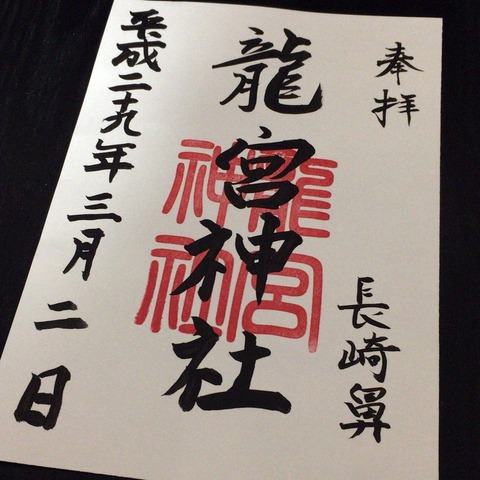 奉拝
長崎鼻
龍宮神社
龍宮
神社
平成二十九年三月二日